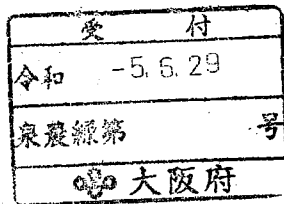 受付
令和 -5.6.29
泉農緑第 号
大阪府